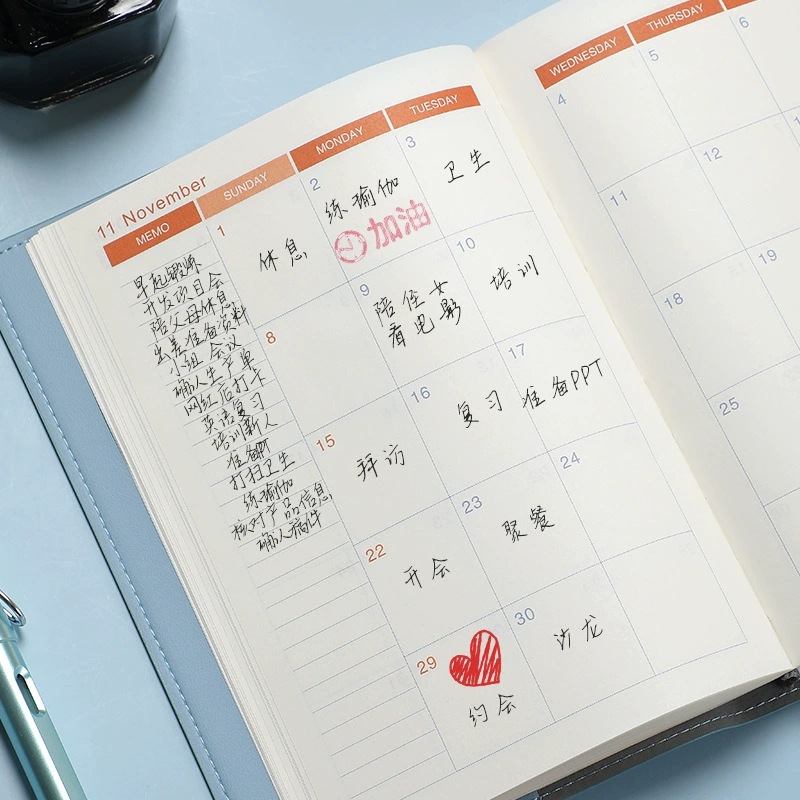 11 November
MEMO
SUNDAY
MONDAY
TUESDAY
WEDNESDAY
THURSDAY
早起锻炼
开发项目会
陪父母休息
出差准备资料
小组会议
确认生产单
网红店打卡
英语复习
培训新人
准备PPT
打扫卫生
练瑜伽
核对产品信息
确认稿件
1
休息
2
练瑜伽
加油
3
卫生
4
5
6
8
9
陪侄女
看电影
10
培训
11
12
15
拜访
16
复习
17
准备PPT
18
19
22
开会
23
聚餐
24
25
29
约会
30
沙龙